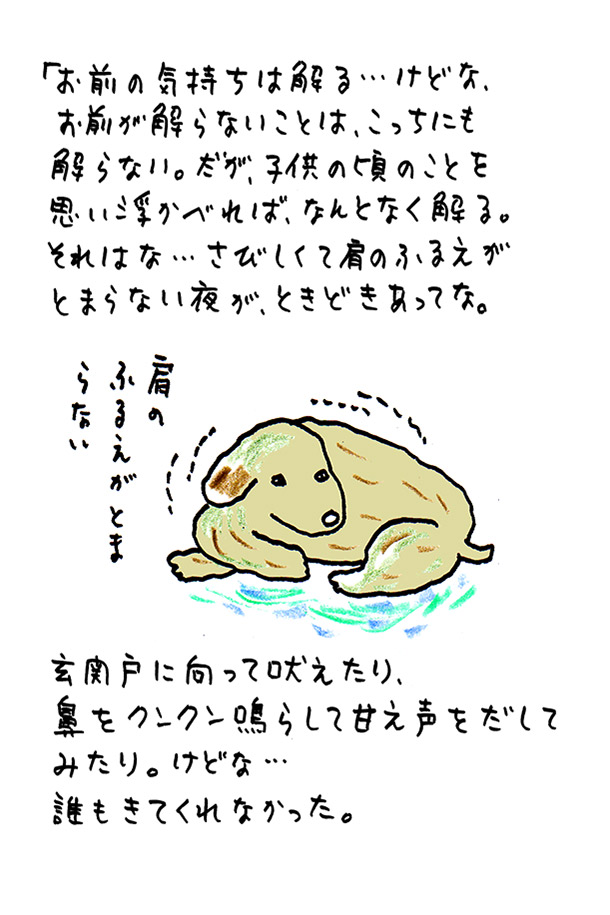 「お前の気持ちは解る…けどな、
お前が解らないことは、こっちにも
解らない。だが、子供の頃のことを
思い浮かべれば、なんとなく解る。
それはな…さびしくて肩のふるえが
とまらない夜が、ときどきあってな。
肩の
ふるえがとま
らない
玄関戸に向って吠えたり、
鼻をクンクン鳴らして甘え声をだして
みたり。けどな…
誰もきてくれなかった。